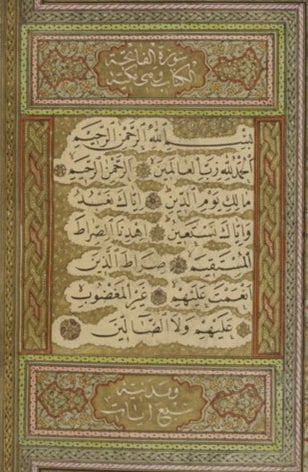 سورة الفاتحة
الكتاب وهي مكية
بسم الله الرحمن الرحيم
الحمد لله رب العالمين الرحمن الرحيم
مالك يوم الدين اياك نعبد
واياك نستعين اهدنا الصراط
المستقيم صراط الذين
انعمت عليهم غير المغضوب
عليهم ولا الضالين
سبع ايات